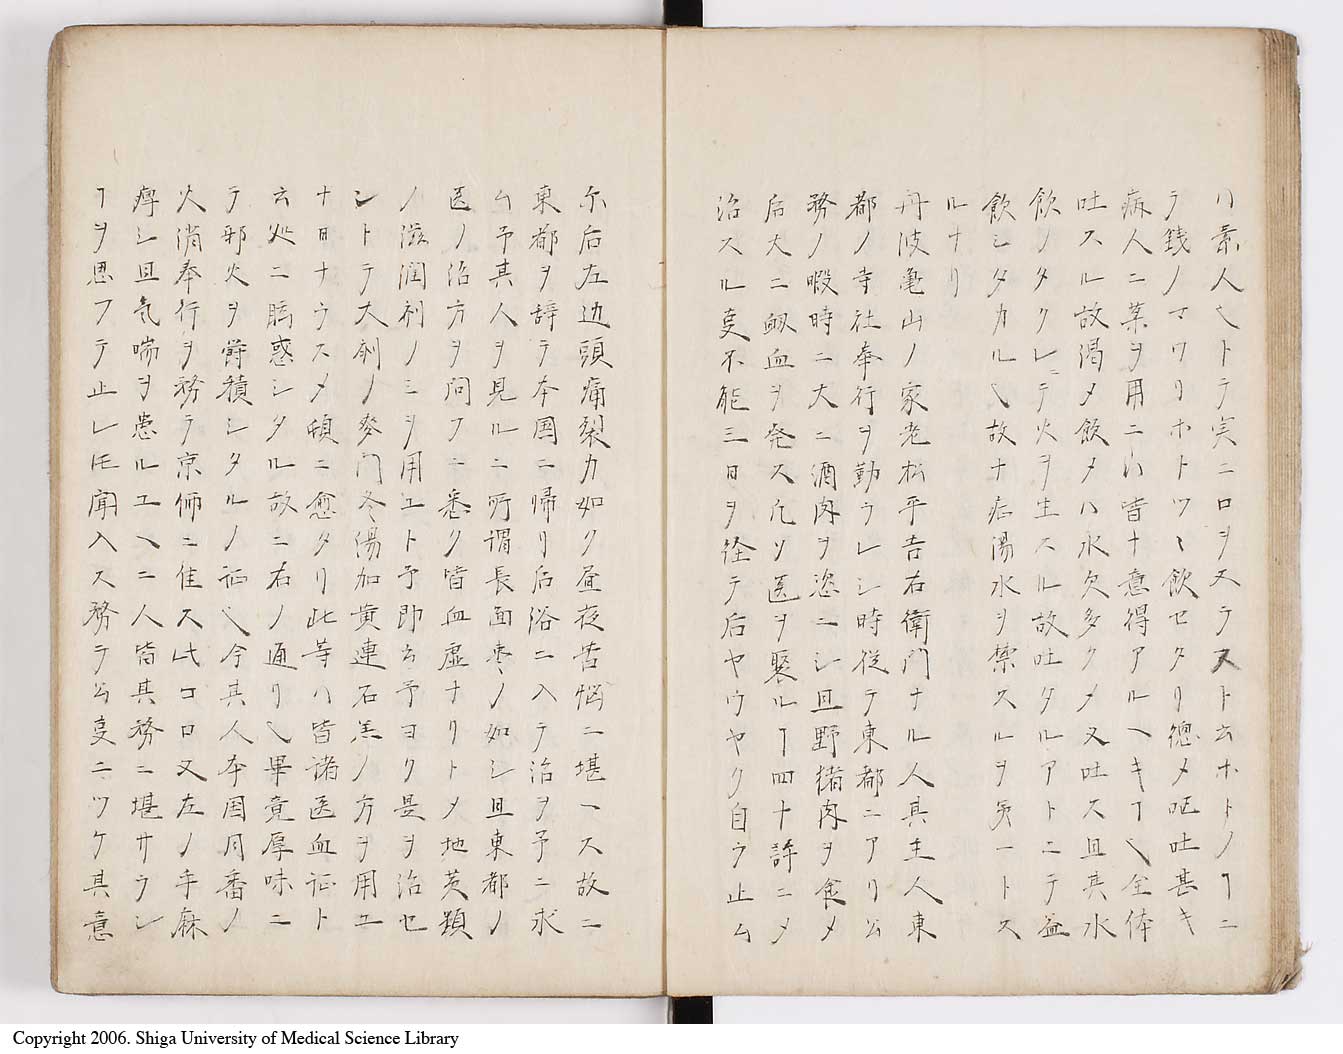 ハ素人ヒトテ実ニロヲヌラストムホトノヿニ
テ銭ノマワリホトツヽ飲セタリ總メ呕吐甚キ
病人ニ薬ヲ用ニハ皆ナ意得アルヘキヿ也全体
吐スル故渇メ飲メハ水欠多クメ又吐ス且其水
飲ノタクレニテ火ヲ生スル故吐タルアトニテ益
飲シタカル也故ナ右湯水ヲ禁スルヲ第一トス
ルナリ
丹波亀山ノ家老松平吉右衛門ナル人其主人東
都ノ寺社奉行ヲ勤ラレシ時従テ東都ニアリ公
務ノ暇時ニ大ニ酒肉ヲ恣ニシ且野猪肉ヲ食メ
后大ニ衂血ヲ発ス凡ソ医ヲ聚ルヿ四十許ニメ
治スル亊不能三日ヲ経テ后ヤウヤク自ラ止ム
尓后左边頭痛裂カ如ク昼夜苦悩ニ堪ヘス故ニ
東都ヲ辞テ本国ニ帰リ后浴ニ入テ治ヲ予ニ求
ム予其人ヲ見ルニ所謂長面枣ノ如シ且東都ノ
医ノ治方ヲ问フニ悉ク皆血虚ナリトメ地黄類
ノ滋潤剤ノミヲ用ユト予即云予ヨク是ヲ治セ
ントテ大剤ノ麥门冬湯加黄連石羔ノ方ヲ用ユ
ナ日ナラスメ頓ニ愈タリ此等ハ皆诸医血证ト
云処ニ瞞惑シタル故ニ右ノ通リ也畢竟厚味ニ
テ邪火ヲ欝積シタルノ证也今其人本国月番ノ
火消奉行ヲ務テ京師ニ住ス此コロ又左ノ手麻
痺シ且気喘ヲ患ルユヘニ人皆其務ニ堪サラン
ヿヲ思フテ止レ𪜈聞入ス務テ公亊ニツケ其意